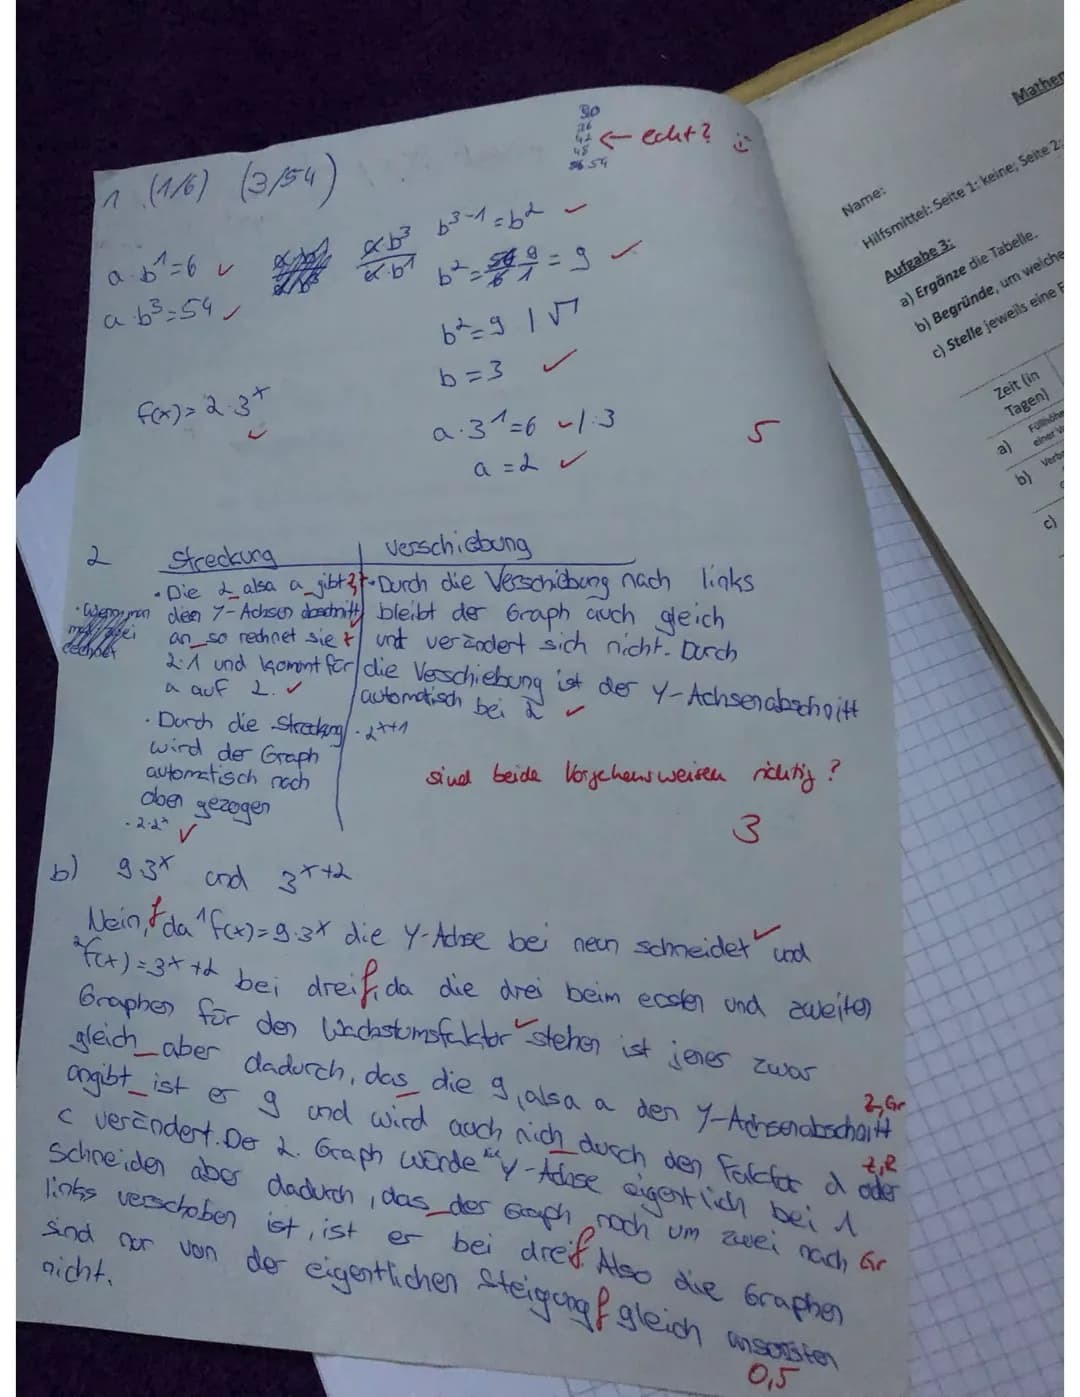 30
36
42
48
54
← echt? :)
1 (1/6) (3/54)
a·b¹=6 ✓
a·b³=54 ✓
a·b³
a·b¹
b³⁻¹=b² ✓
b²=54/6 9/1 = 9 ✓
b²=9 | √
b=3 ✓
f(x)=2·3ˣ ✓
a·3¹=6 ✓ |:3
a=2 ✓
5
2 Streckung | Verschiebung
· Die 2 alsa a gibt
den Y-Achsen abschnitt
an so rechnet sie
2·1 und kommt für
a auf 2. ✓
· Durch die Streckung
wird der Graph
automatisch nach
oben gezogen
· 2·2ˣ ✓
· Wenn man
rechnet
· Durch die Verschiebung nach links
bleibt der Graph auch gleich
und verändert sich nicht. Durch
die Verschiebung ist der Y-Achsenabschnitt
automatisch bei 2 ✓
· 2ˣ⁺¹
sind beide Vorgehensweisen richtig?
3
b) 9·3ˣ und 3ˣ⁺²
Nein, f da ¹f(x)=9·3ˣ die Y-Achse bei neun schneidet ✓ und
²f(x)=3ˣ⁺² bei drei f, da die drei beim ersten und zweiten
Graphen für den Wachstumsfaktor ✓ stehen ist jenes zwar
gleich aber dadurch, das die 9, alsa a den Y-Achsenabschnitt
Z, Gr
angibt ist er 9 und wird auch nich durch den Faktor d oder
Z, R
c verändert. Der 2. Graph würde die y-Achse eigentlich bei 1
schneiden aber dadurch, das der Graph noch um zwei nach
Gr
links verschoben ist, ist er bei drei f. Also die Graphen
sind nur von der eigentlichen Steigung f gleich ansonsten
nicht.
0,5
Mathem
Name:
Hilfsmittel: Seite 1: keine; Seite 2:
Aufgabe 3:
a) Ergänze die Tabelle.
b) Begründe, um welche
c) Stelle jeweils eine F
Zeit (in
Tagen)
a) Füllhöhe
einer
b) Verb
c)